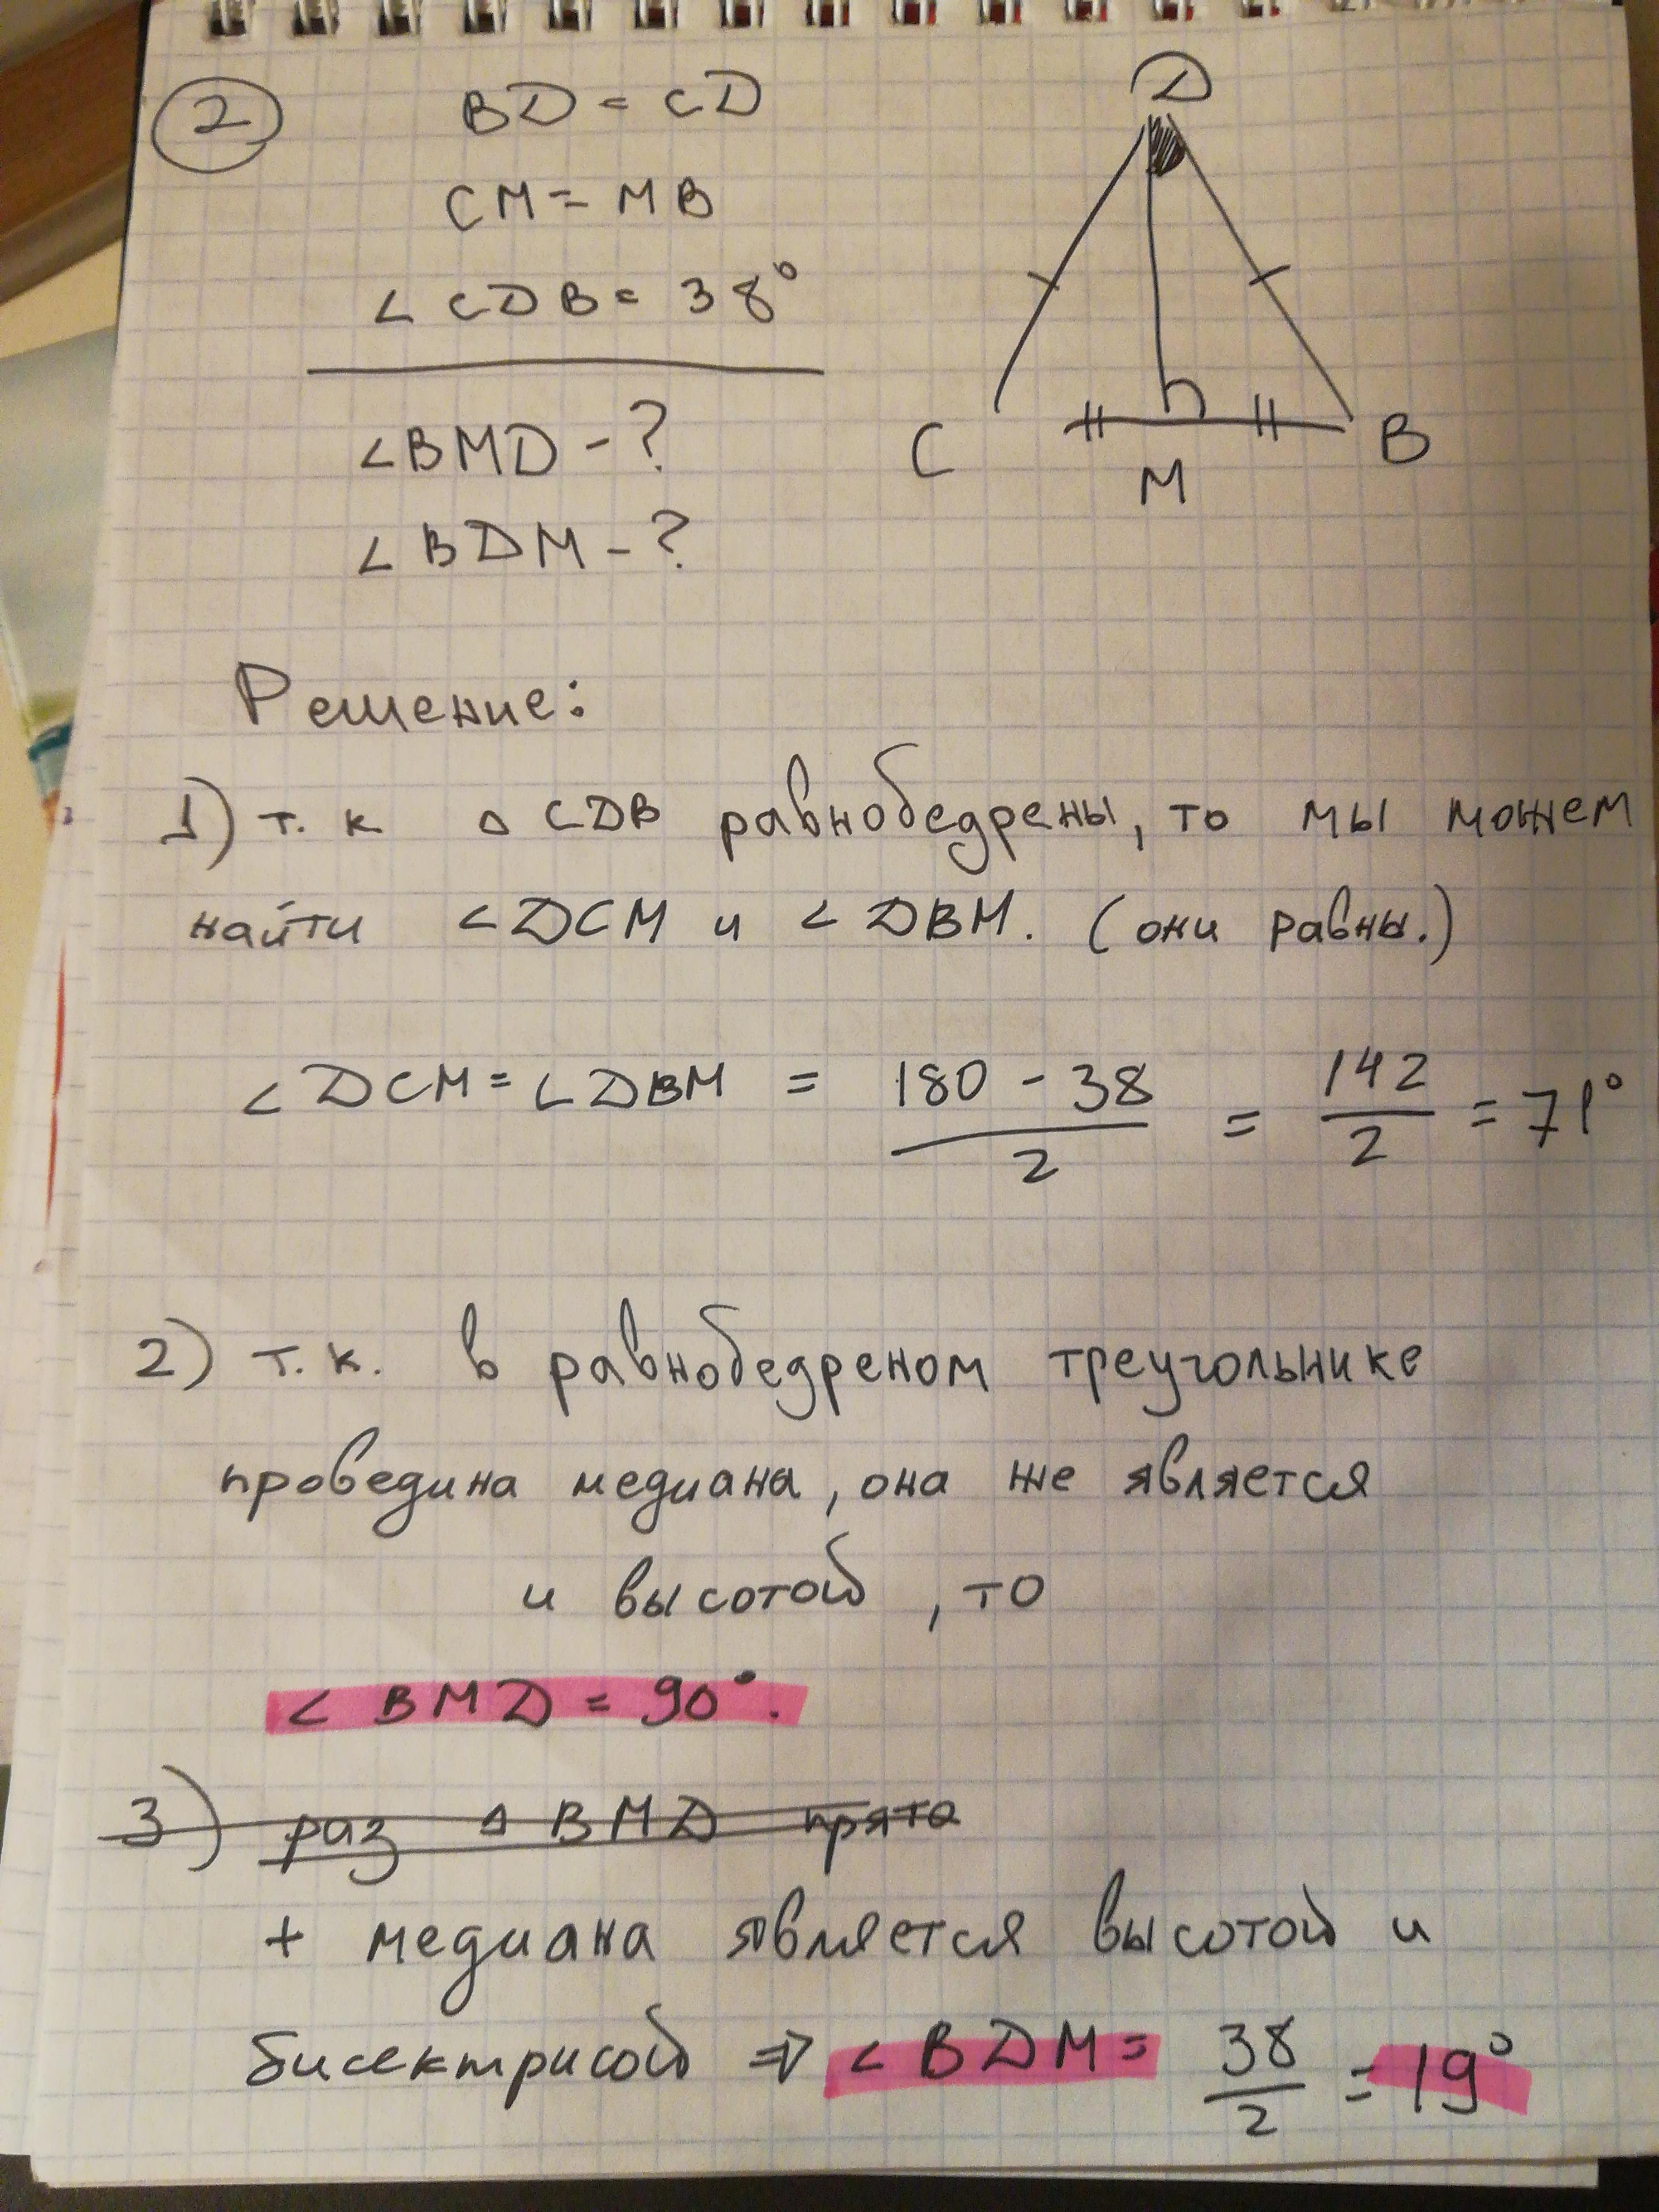 2
BD = CD
CM = MB
∠CDB = 38°
∠BMD - ?
∠BDM - ?
D
C
M
B
Решение:
1) т.к △CDB равнобедрены, то мы можем
найти ∠DCM и ∠DBM. (они равны.)
∠DCM = ∠DBM = (180 - 38)/2 = 142/2 = 71°
2) т.к. в равнобедреном треугольнике
проведина медиана, она же является
и высотой, то
∠BMD = 90°.
3) раз △BMD прято
+ медиана является высотой и
бисектрисой ⇒ ∠BDM = 38/2 = 19°